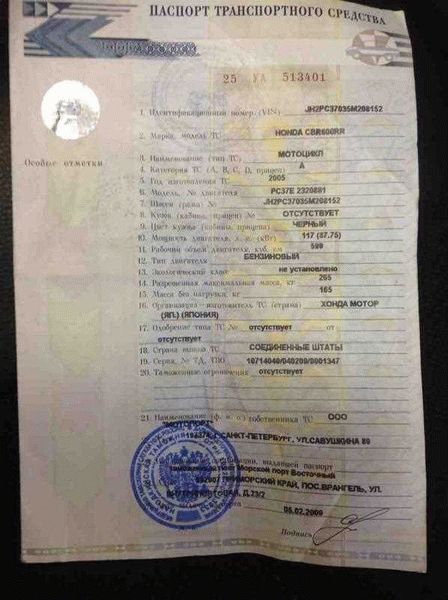 ПАСПОРТ ТРАНСПОРТНОГО СРЕДСТВА
25 УА 513401
1. Идентификационный номер (VIN) JH2PC37035M208152
2. Марка, модель ТС HONDA CBR600RR
3. Наименование (тип ТС) МОТОЦИКЛ
Особые отметки
4. Категория ТС (A, B, C, D, прицеп) A
5. Год изготовления ТС 2005
6. Модель, № двигателя PC37E 2320881
7. Шасси (рама) № JH2PC37035M208152
8. Кузов (кабина, прицеп) № ОТСУТСТВУЕТ
9. Цвет кузова (кабины, прицепа) ЧЕРНЫЙ
10. Мощность двигателя, л. с. (кВт) 117 (87.75)
11. Рабочий объем двигателя, куб. см 599
12. Тип двигателя БЕНЗИНОВЫЙ
13. Экологический класс не установлено
14. Разрешенная максимальная масса, кг 265
15. Масса без нагрузки, кг 165
16. Организация-изготовитель ТС (страна) ХОНДА МОТОР
(ЯП.) (ЯПОНИЯ)
17. Одобрение типа ТС № отсутствует от
отсутствует
18. Страна вывоза ТС СОЕДИНЕННЫЕ ШТАТЫ
19. Серия, № ТД, ТПО 10714040/040209/0001347
20. Таможенные ограничения отсутствует
21. Наименование (ф. и. о.) собственника ТС ООО
"МОТОПОРТ"
САНКТ-ПЕТЕРБУРГ, УЛ.САВУШКИНА 89
выдавшей паспорт
таможенный пост Морской порт Восточный
ПРИМОРСКИЙ КРАЙ, ПОС.ВРАНГЕЛЬ, УЛ.
Д.23/2
05.02.2009
Подпись